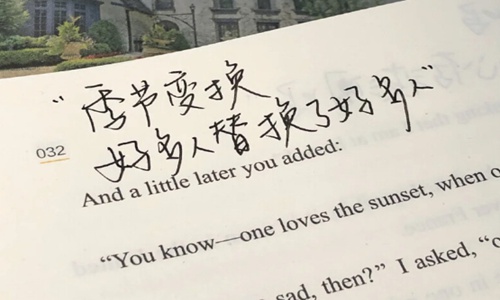 “季节变换
好多人替换了好多人”
032
And a little later you added:
“You know—one loves the sunset, when o
sad, then?” I asked, “o